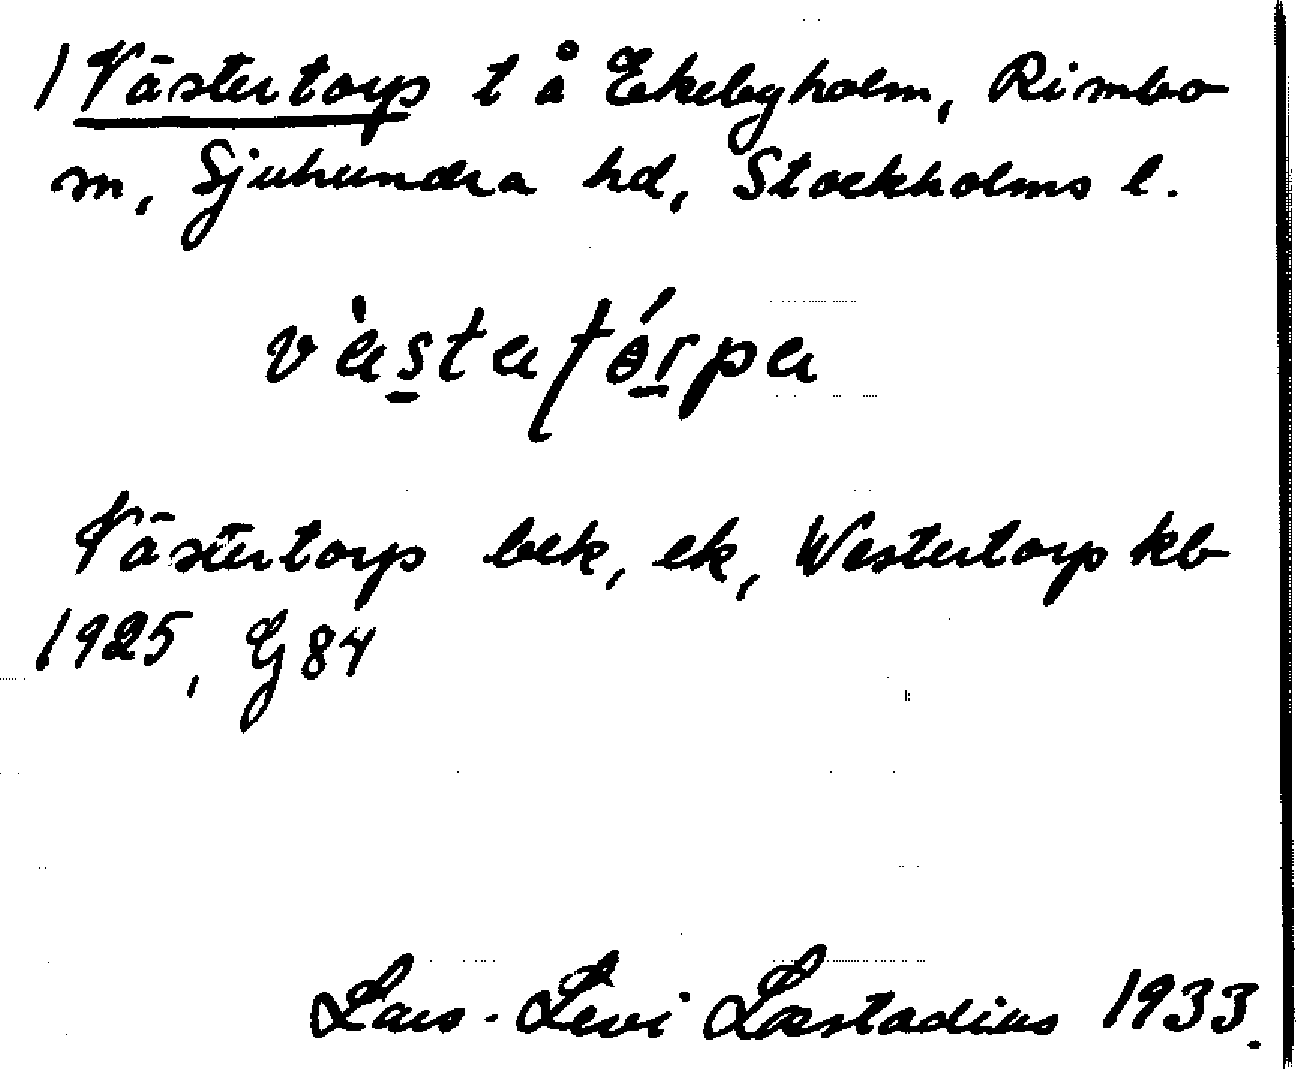 1 Västertorp t å Ekebyholm, Rimbo
sn, Sjuhundra hd, Stockholms l.
västatórpa
Västertorp bek, ek, Westertorp kb
1925, G 84
Lars-Levi Læstadius 1933.